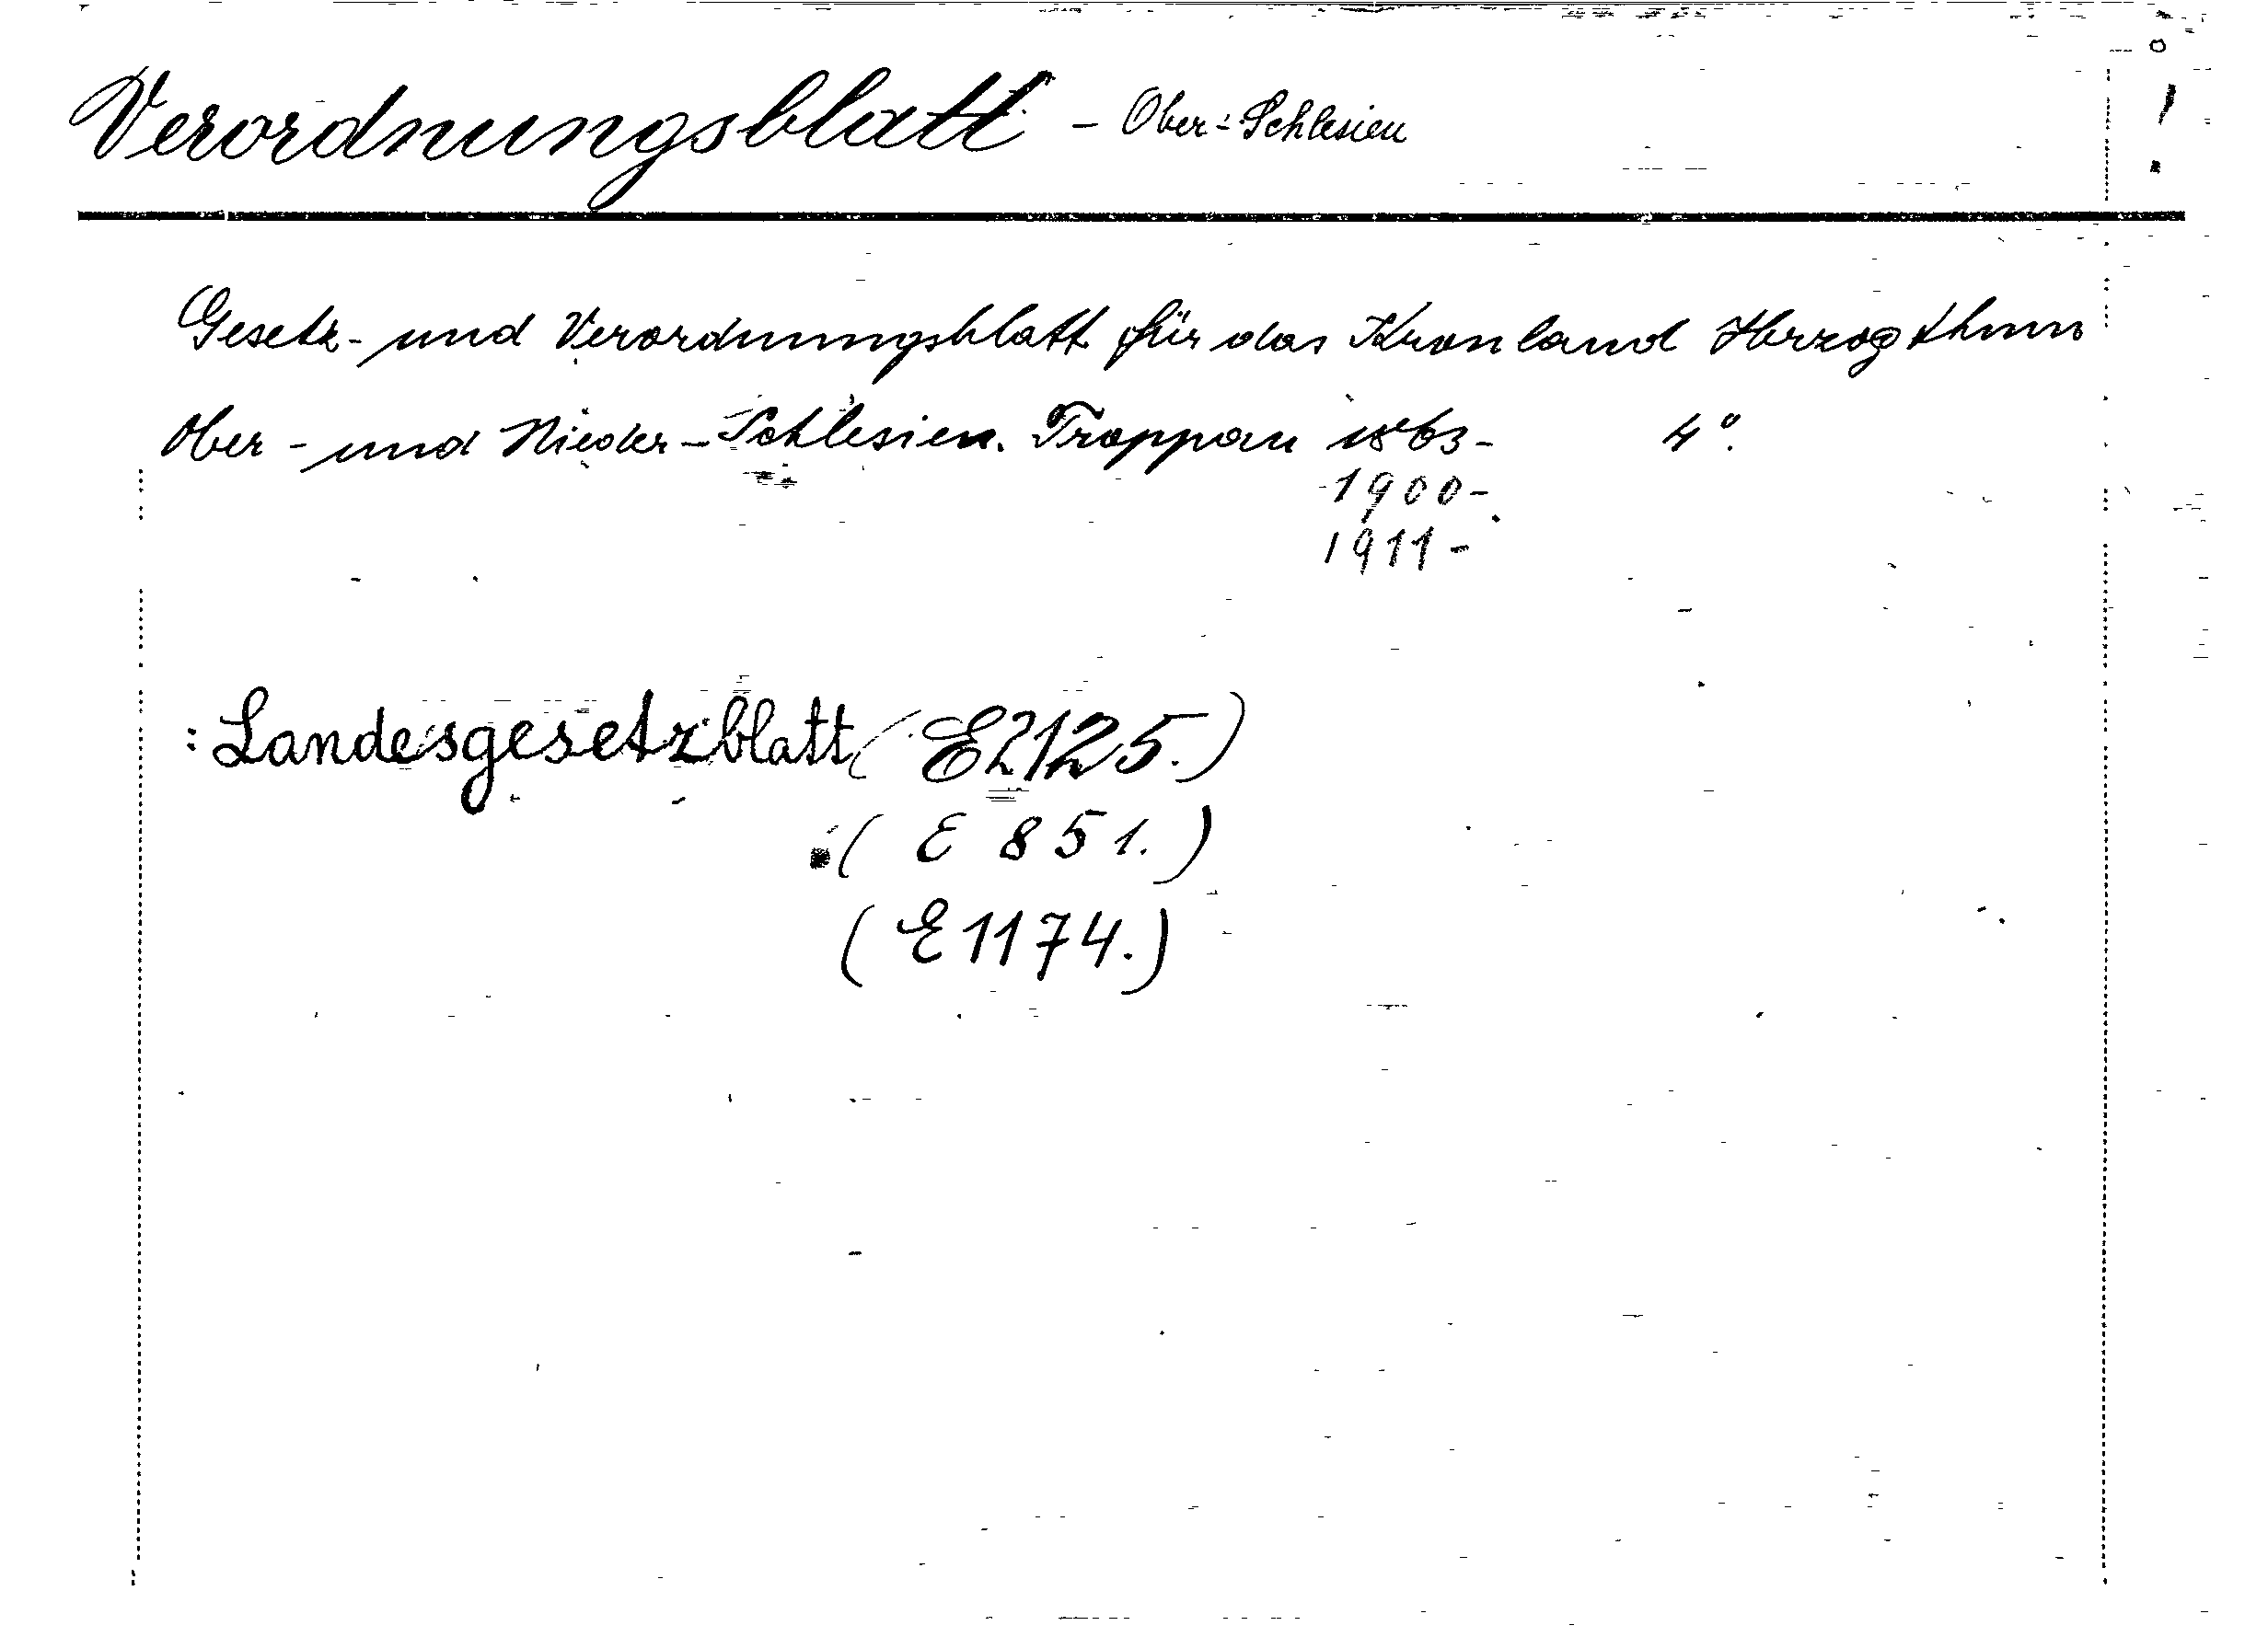 Verordnungsblatt - Ober-Schlesien !
Gesetz- und Verordnungsblatt für das Kronland Herzogthum
Ober- und Nieder-Schlesien. Troppau 1863- 4°.
1900-
1911-
: Landesgesetzblatt (E2125.)
(E 851.)
(E 1174.)